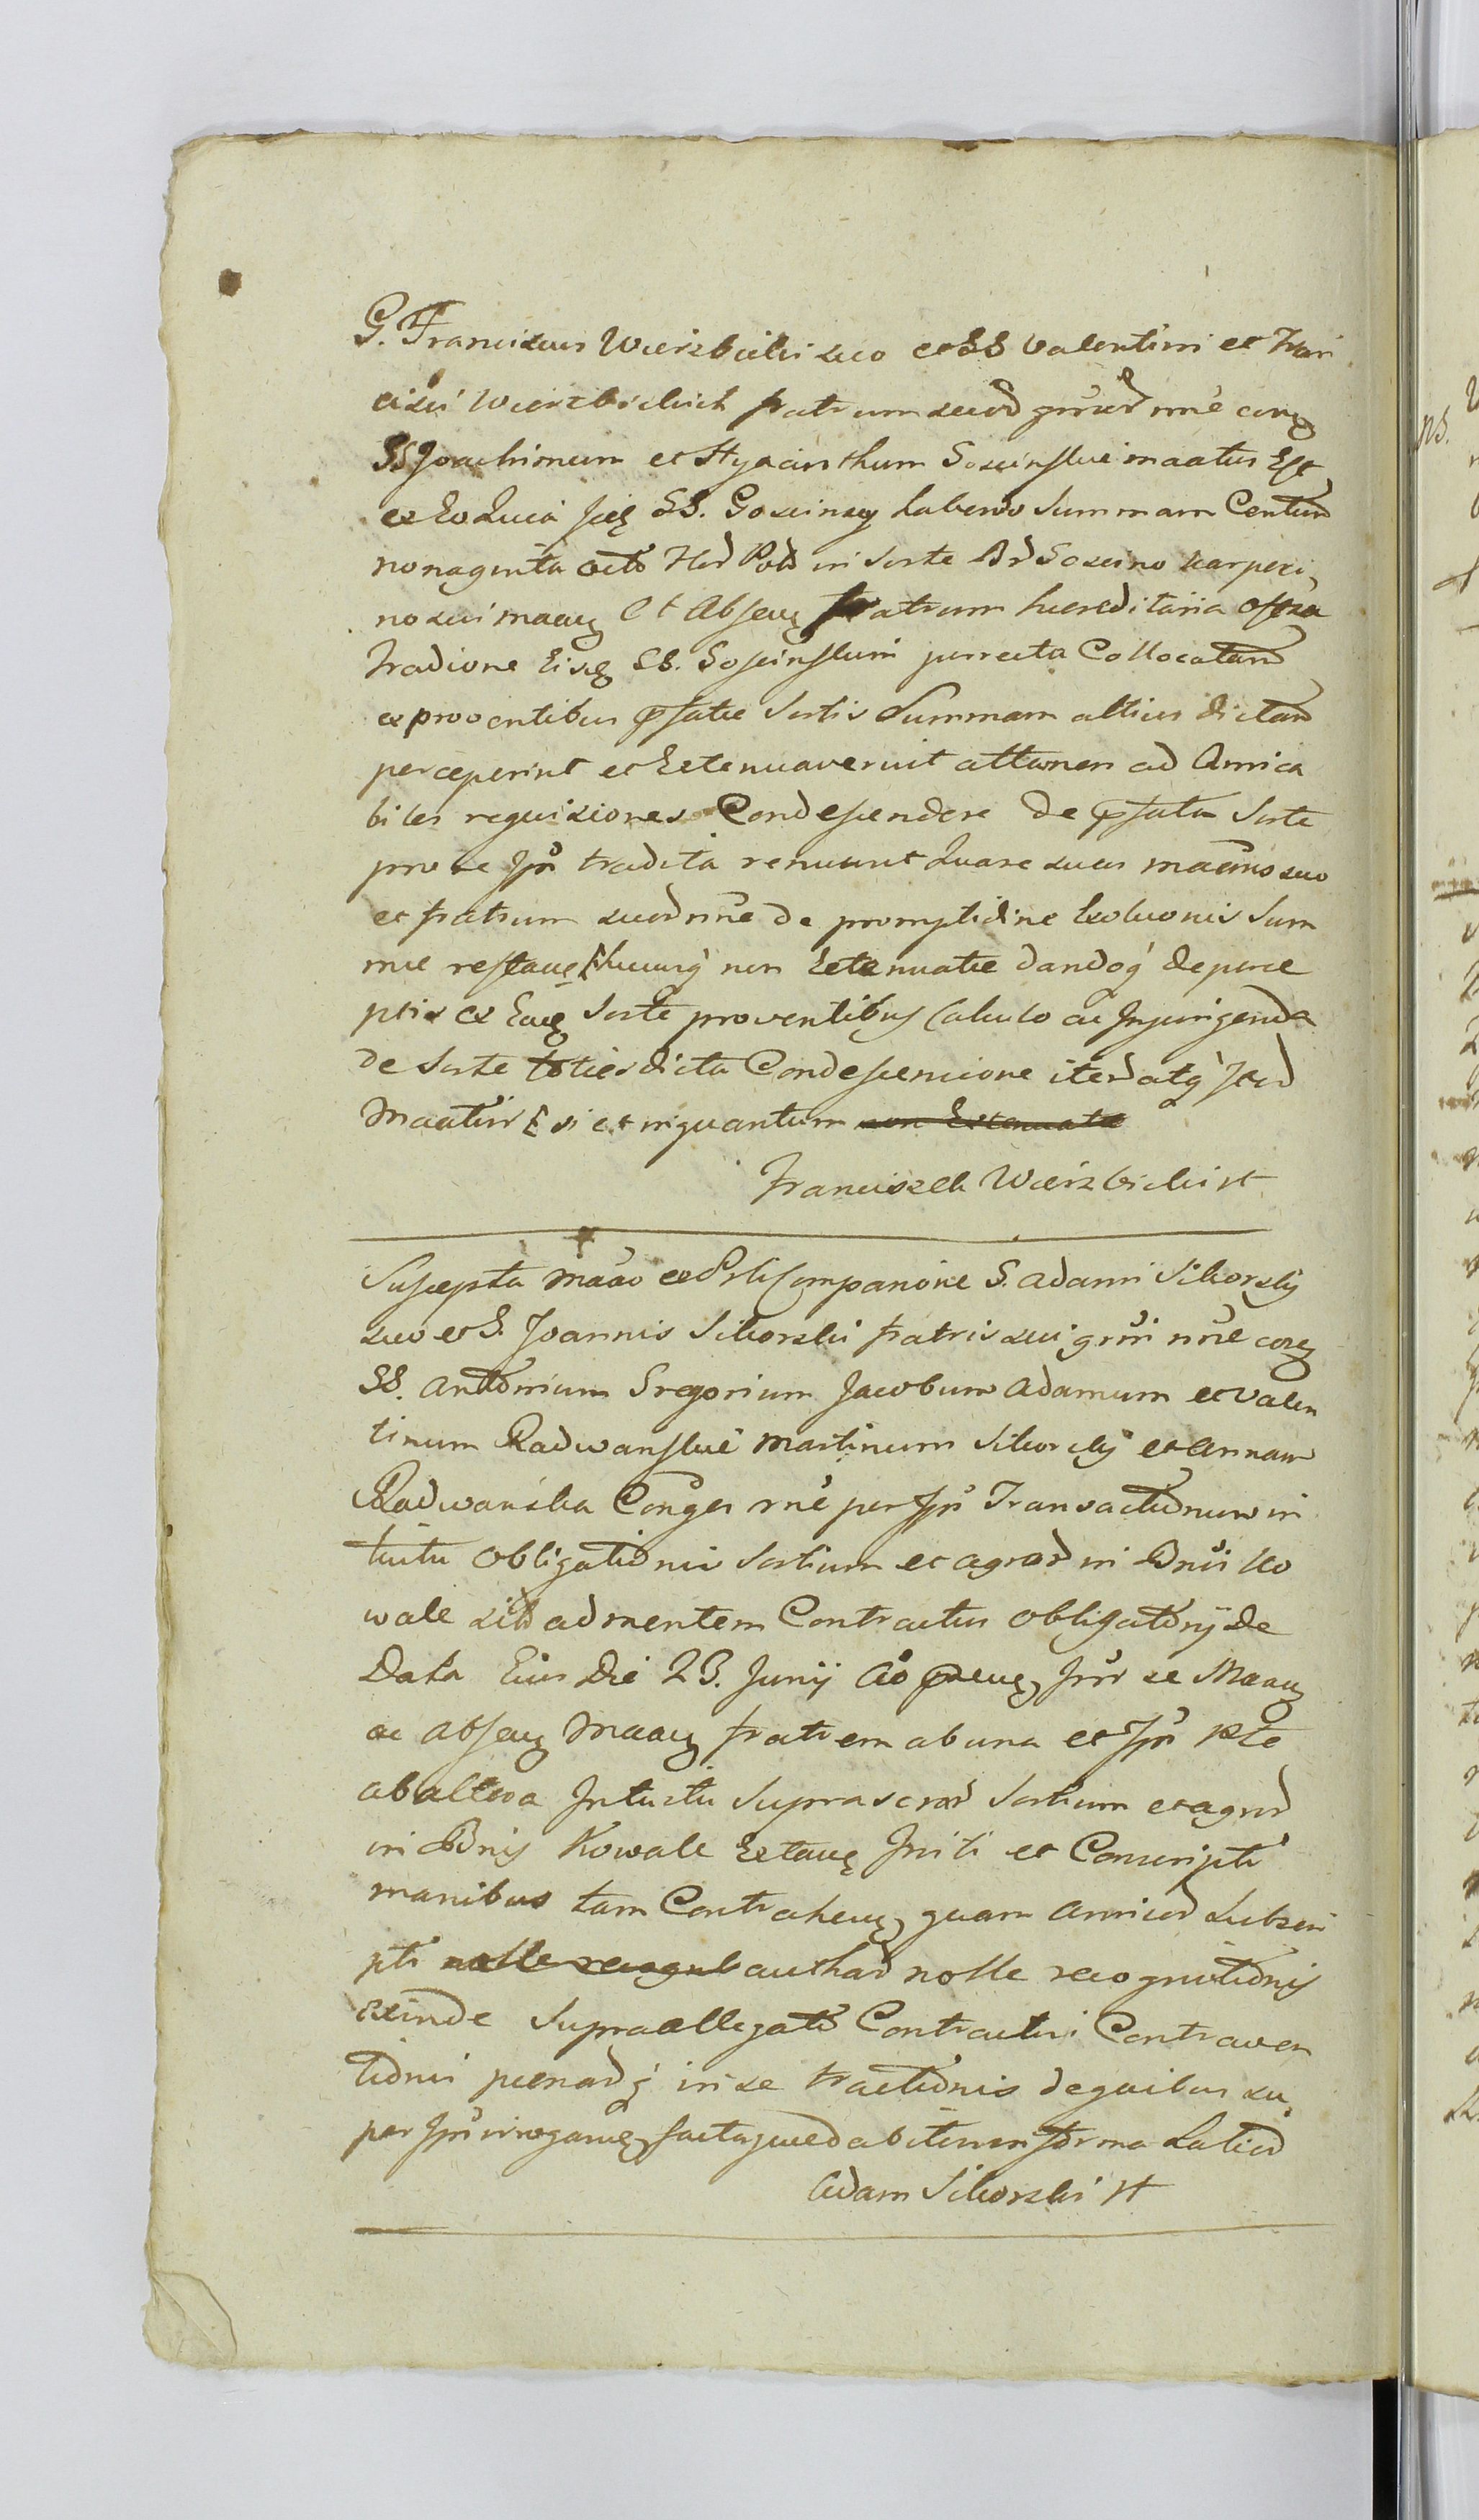 G. Franciscus Wierzbicki suo et SS Valentini et Fran
cisci Wierzbickich fratrum suor gnor nne cong
SS Joachimum et Hyacinthum Goscinskie maatus Est
ex Eo Quia SS. Goscinscy habendo Summam Centum
nonaginta octo Flor Pol in Sorte Br Goscino karpeci
no sui maaeg Et Abseng fratrum haereditaria
Tradione Eisq SS. Goscinskim Collocatam
ex proventibus pfatae Sortis Summam altius dictam
perceperint et Extenuaverint attamen ad Amica
biles requisiones Condescendere De pfata Sorte
pro se Ips tradita renuunt Quare suas suo
et fratrum suor nne de promptidine Exoluonis Sum
mae restaneg non Extenuatae dandoq de perce
ptis ex Eaq Sorte proventibus Calculo ac
de Sorte toties dicta Condescensione iter atq
Maatur si et inquantum non Extenuata
Franciszek Wierzbicki H
Suscepta maao ex Companone S. Adami Sikorsky
suo et S. Joannis Sikorski fratris sui gnri nne cong
SS. Antonium Gregorium Jacobum Adamum et Valen
tinum Radwanskie Martinum Sikorsky et Annam
Radwanska Conges rne per Ips Transactionum in
tuitu Obligationis Sortium et agror in Bnis Ko
wale sitis ad mentem Contractus Obligatorij de
Data Eius Die 23. Junij Ao inr se Maaeg
ac abseng Maaeg fratrem ab una et Ips pte
ab altera Intuitu Suprascror Sortium et agror
in Bnis Kowale Extaneg Initi et Conscripti
manibus tam Contraheng quam amicor Subscri
pti nolle recogni nolle recognitionis
exinde Supraallegato Contractui Contraven
tionis penarq in se tractionis de quibus su
per Ips irroganeg forma Latior
Adam Sikorski H